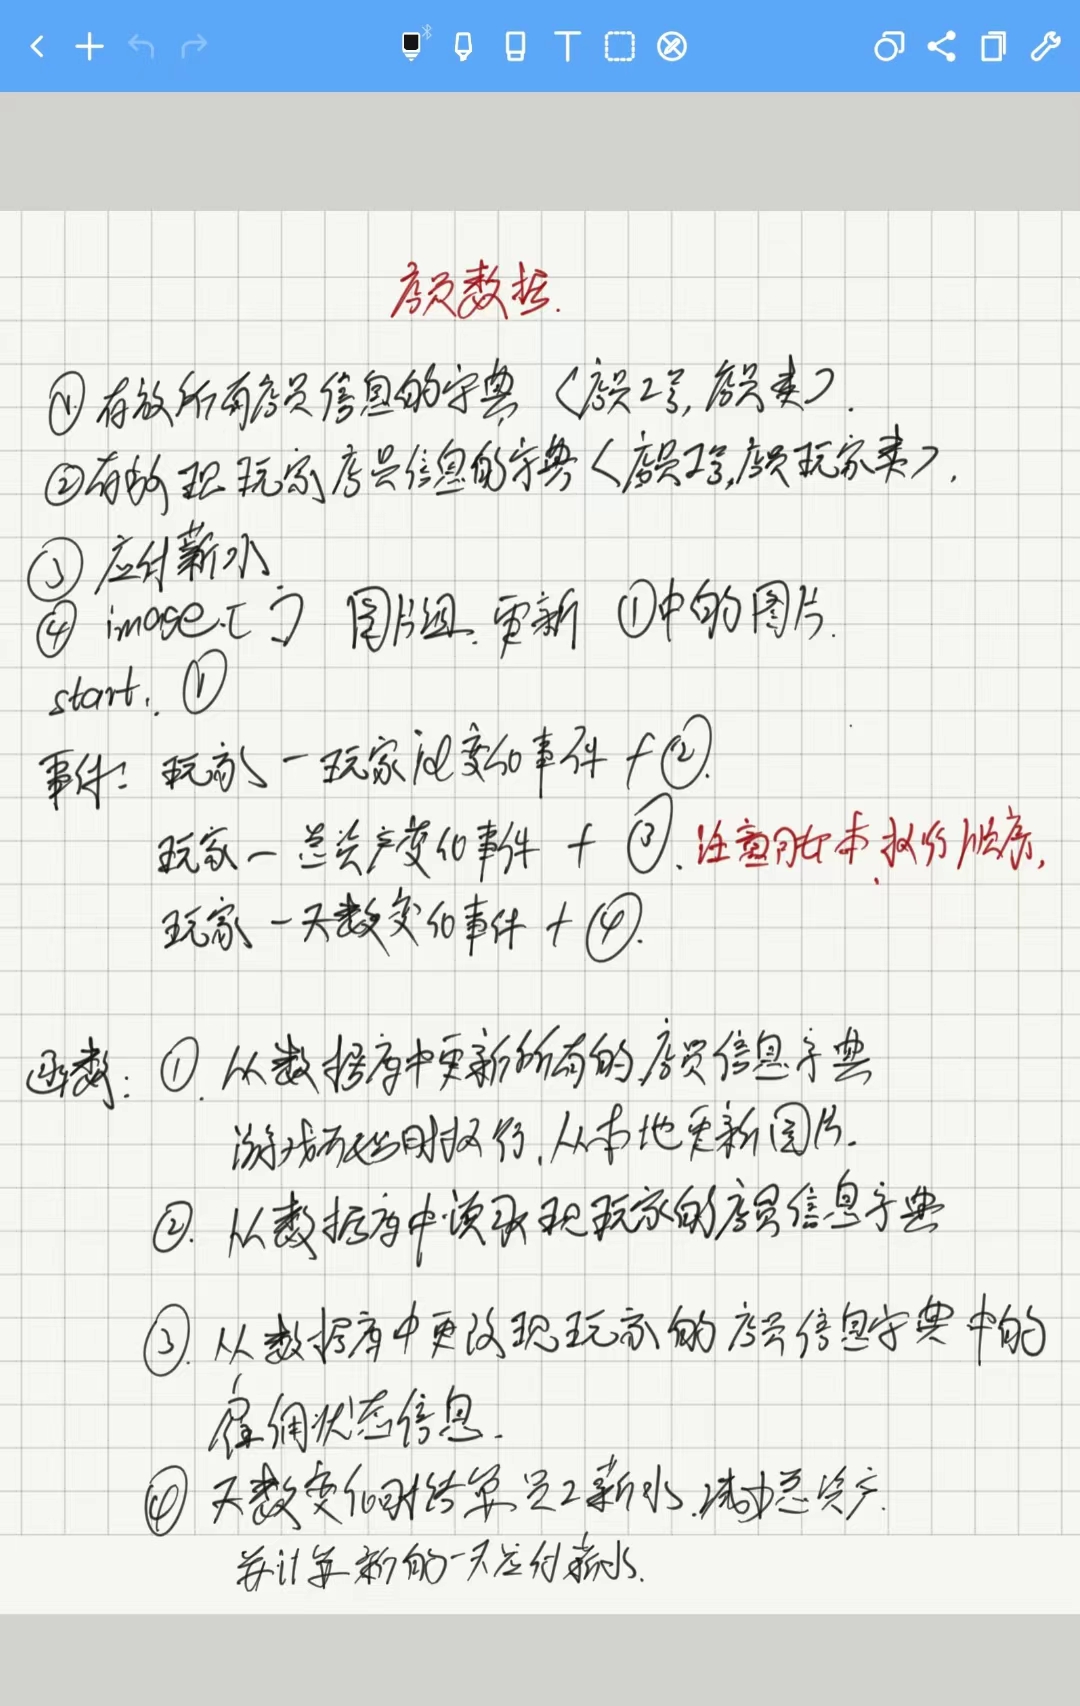 店员数据.
① 存放所有店员信息的字典 〈店员工号,店员类〉.
②存放现玩家店员信息的字典〈店员工号,店员玩家类〉.
③ 应付薪水
④ image[] 图片组.更新 ①中的图片.
start. ①
事件: 玩家—玩家id变化事件 + ②.
玩家—总资产变化事件 + ③. 注意脚本执行顺序,
玩家—天数变化事件 + ④.
函数: ①. 从数据库中更新所有的店员信息字典
游戏开始时执行,从本地更新图片.
②. 从数据库中读取现玩家的店员信息字典
③. 从数据库中更改现玩家的店员信息字典中的
雇佣状态信息.
④ 天数变化时结算员工薪水.减少总资产.
并计算新的一天应付薪水.